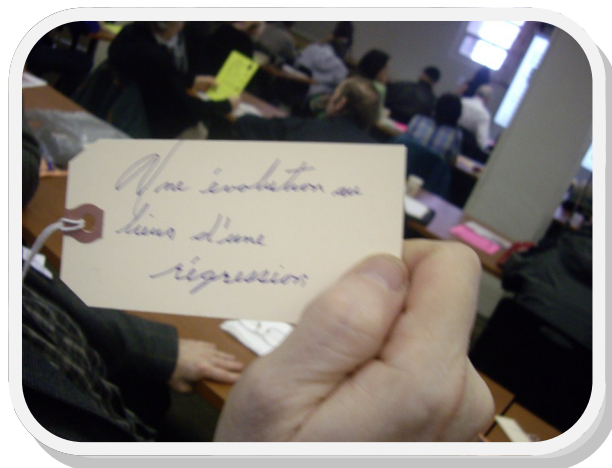 Une évolution au
lieu d'une
régression